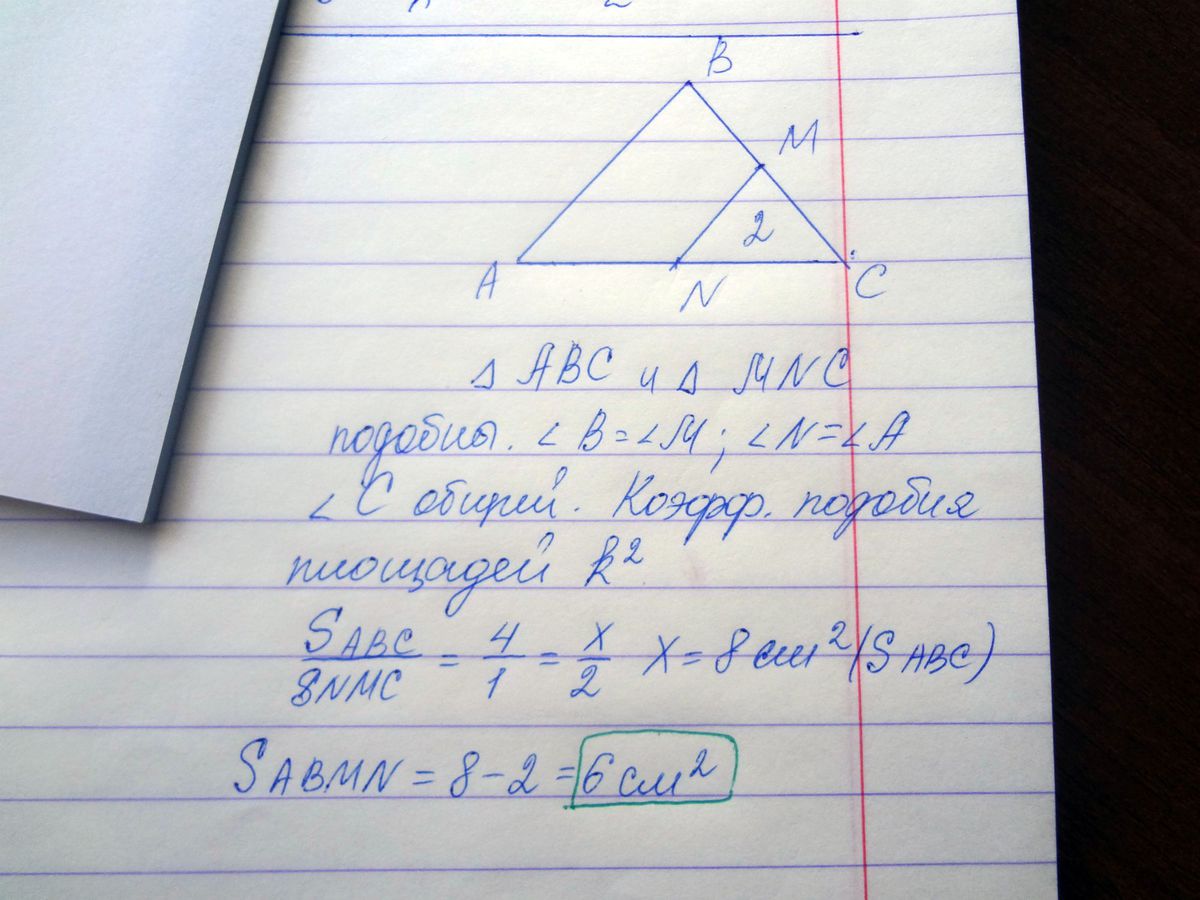 B
M
2
A
N
C
Δ ABC и Δ MNC
подобны. ∠ B = ∠M ; ∠N = ∠A
∠ C общий. Коэфф. подобия
площадей k²
SABC/SNMC = 4/1 = x/2 x = 8 см² (SABC)
SABMN = 8 - 2 = 6 см²